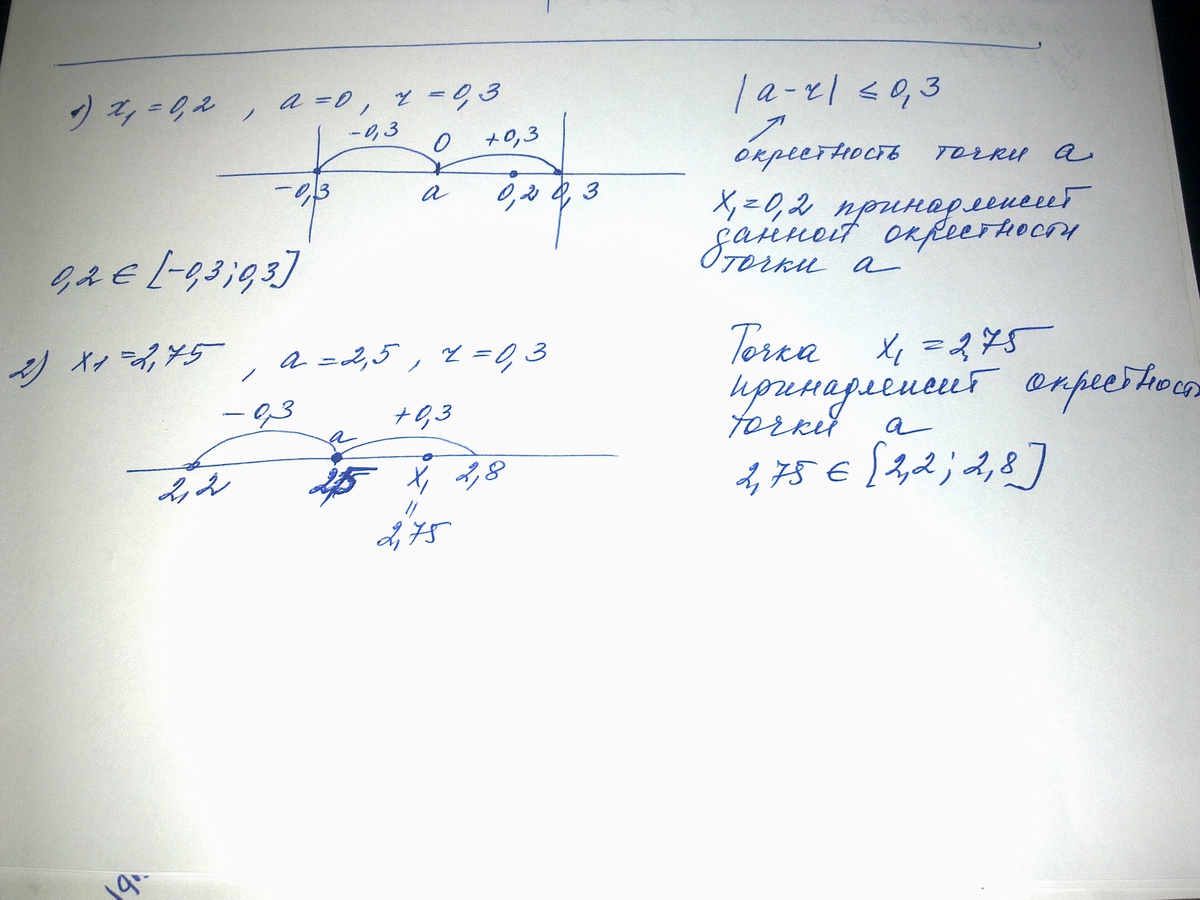 1) x₁ = 0,2 , a = 0, r = 0,3
-0,3 0 +0,3
-0,3 a 0,2 0,3
0,2 ∈ [-0,3; 0,3]
|a - r| ≤ 0,3
окрестность точки a
x₁ = 0,2 принадлежит
данной окрестности
точки a
2) x₁ = 2,75 , a = 2,5 , r = 0,3
-0,3 a +0,3
2,2 2,5 x₁ 2,8
"
2,75
Точка x₁ = 2,75
принадлежит окрестность
точки a
2,75 ∈ [2,2; 2,8]